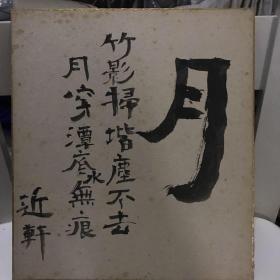 月
竹影掃堦塵不去
月穿潭底水無痕
近軒